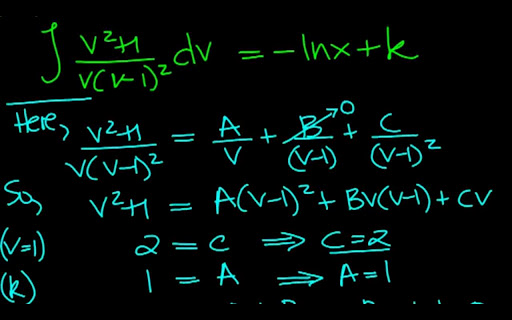 ∫ v²+1 / v(v-1)² dv = -lnx + k
Here, v²+1 / v(v-1)² = A/v + B/(v-1) →0 + C/(v-1)²
So, v²+1 = A(v-1)² + Bv(v-1) + Cv
(v=1) 2 = C ⇒ C=2
(k) 1 = A ⇒ A=1